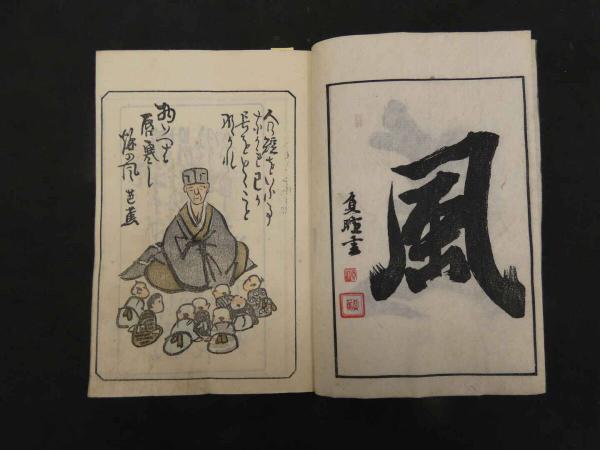 風
書
人の短をいふ事
なかれ己が
長をとくこと
なかれ
物いへば
唇寒し
秋の風 芭蕉